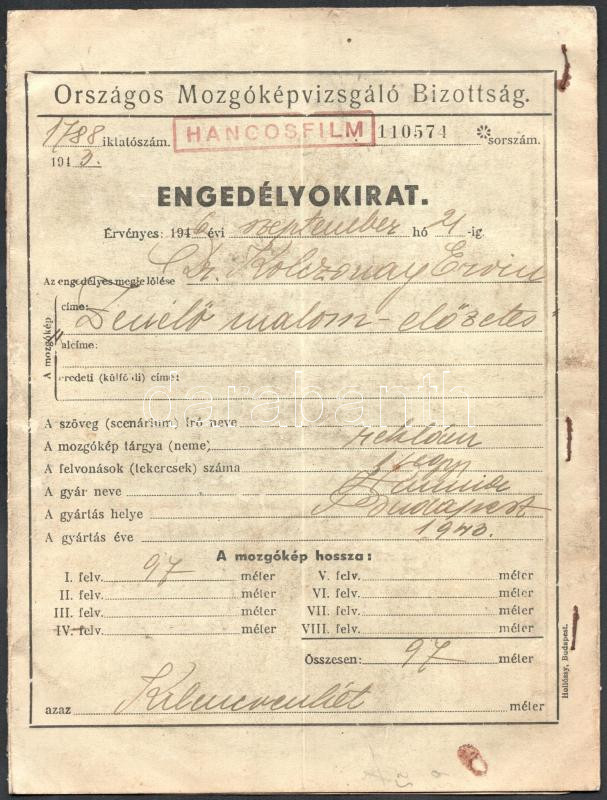 Országos Mozgóképvizsgáló Bizottság.
1788 iktatószám. HANCOSFILM 110574 sorszám.
1943.
ENGEDÉLYOKIRAT.
Érvényes: 1946 évi szeptember hó 21-ig.
Az engedélyes megjelölése Dr. Kolczonay Ervin
A mozgókép
címe: "Zenélő malom - előzetes"
alcíme:
eredeti (külföldi) címe:
darabanth
A szöveg (scenárium) író neve
A mozgókép tárgya (neme) reklám
A felvonások (tekercsek) száma 1 egy
A gyár neve
A gyártás helye Budapest
A gyártás éve 1943.
A mozgókép hossza:
I. felv. 97 méter V. felv. méter
II. felv. méter VI. felv. méter
III. felv. méter VII. felv. méter
IV. felv. méter VIII. felv. méter
Összesen: 97 méter
azaz Kilencvenhét méter
Hollóssy, Budapest.